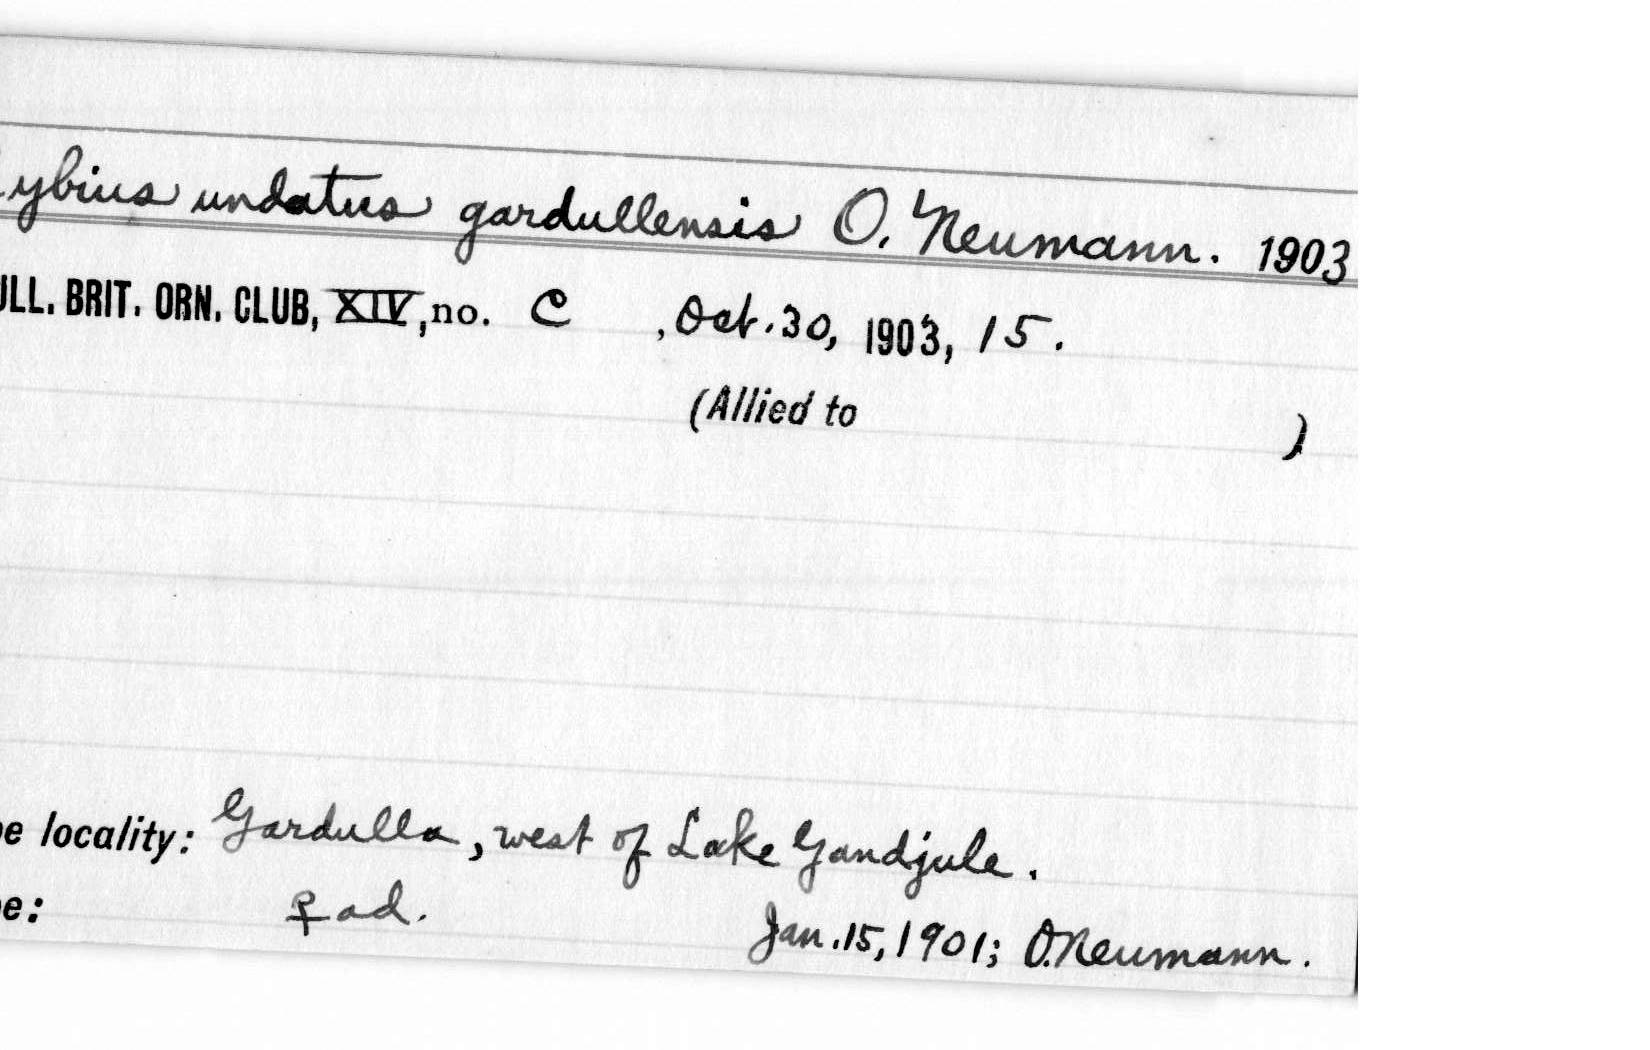 ybius undatus gardullensis O. Neumann. 1903
ULL. BRIT. ORN. CLUB, XIV, no. C , Oct. 30, 1903, 15.
(Allied to )
e locality: Gardulla, west of Lake Gandjule.
e: ♀ ad. Jan. 15, 1901; O. Neumann.